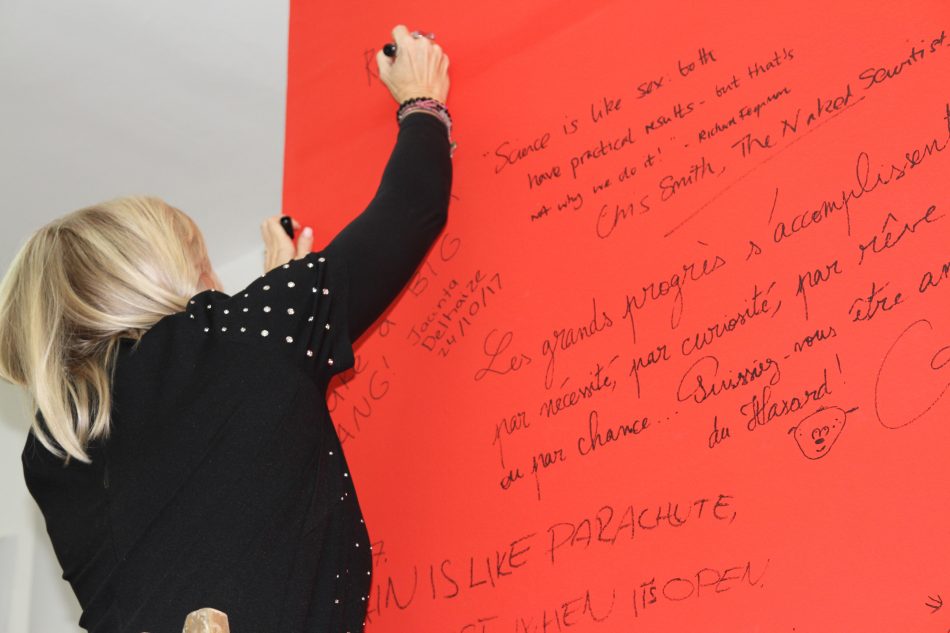 R
"Science is like sex: both
have practical results - but that's
not why we do it!" - Richard Feynman
Chris Smith, The Naked Scientist.
BIG
BANG!
Jacinta
Delhaize
24/10/17
Les grands progrès s'accomplissent
par nécessité, par curiosité, par rêve
ou par chance... Puissiez-vous être
du Hasard!
7.
IS LIKE PARACHUTE,
WHEN ITS OPEN.